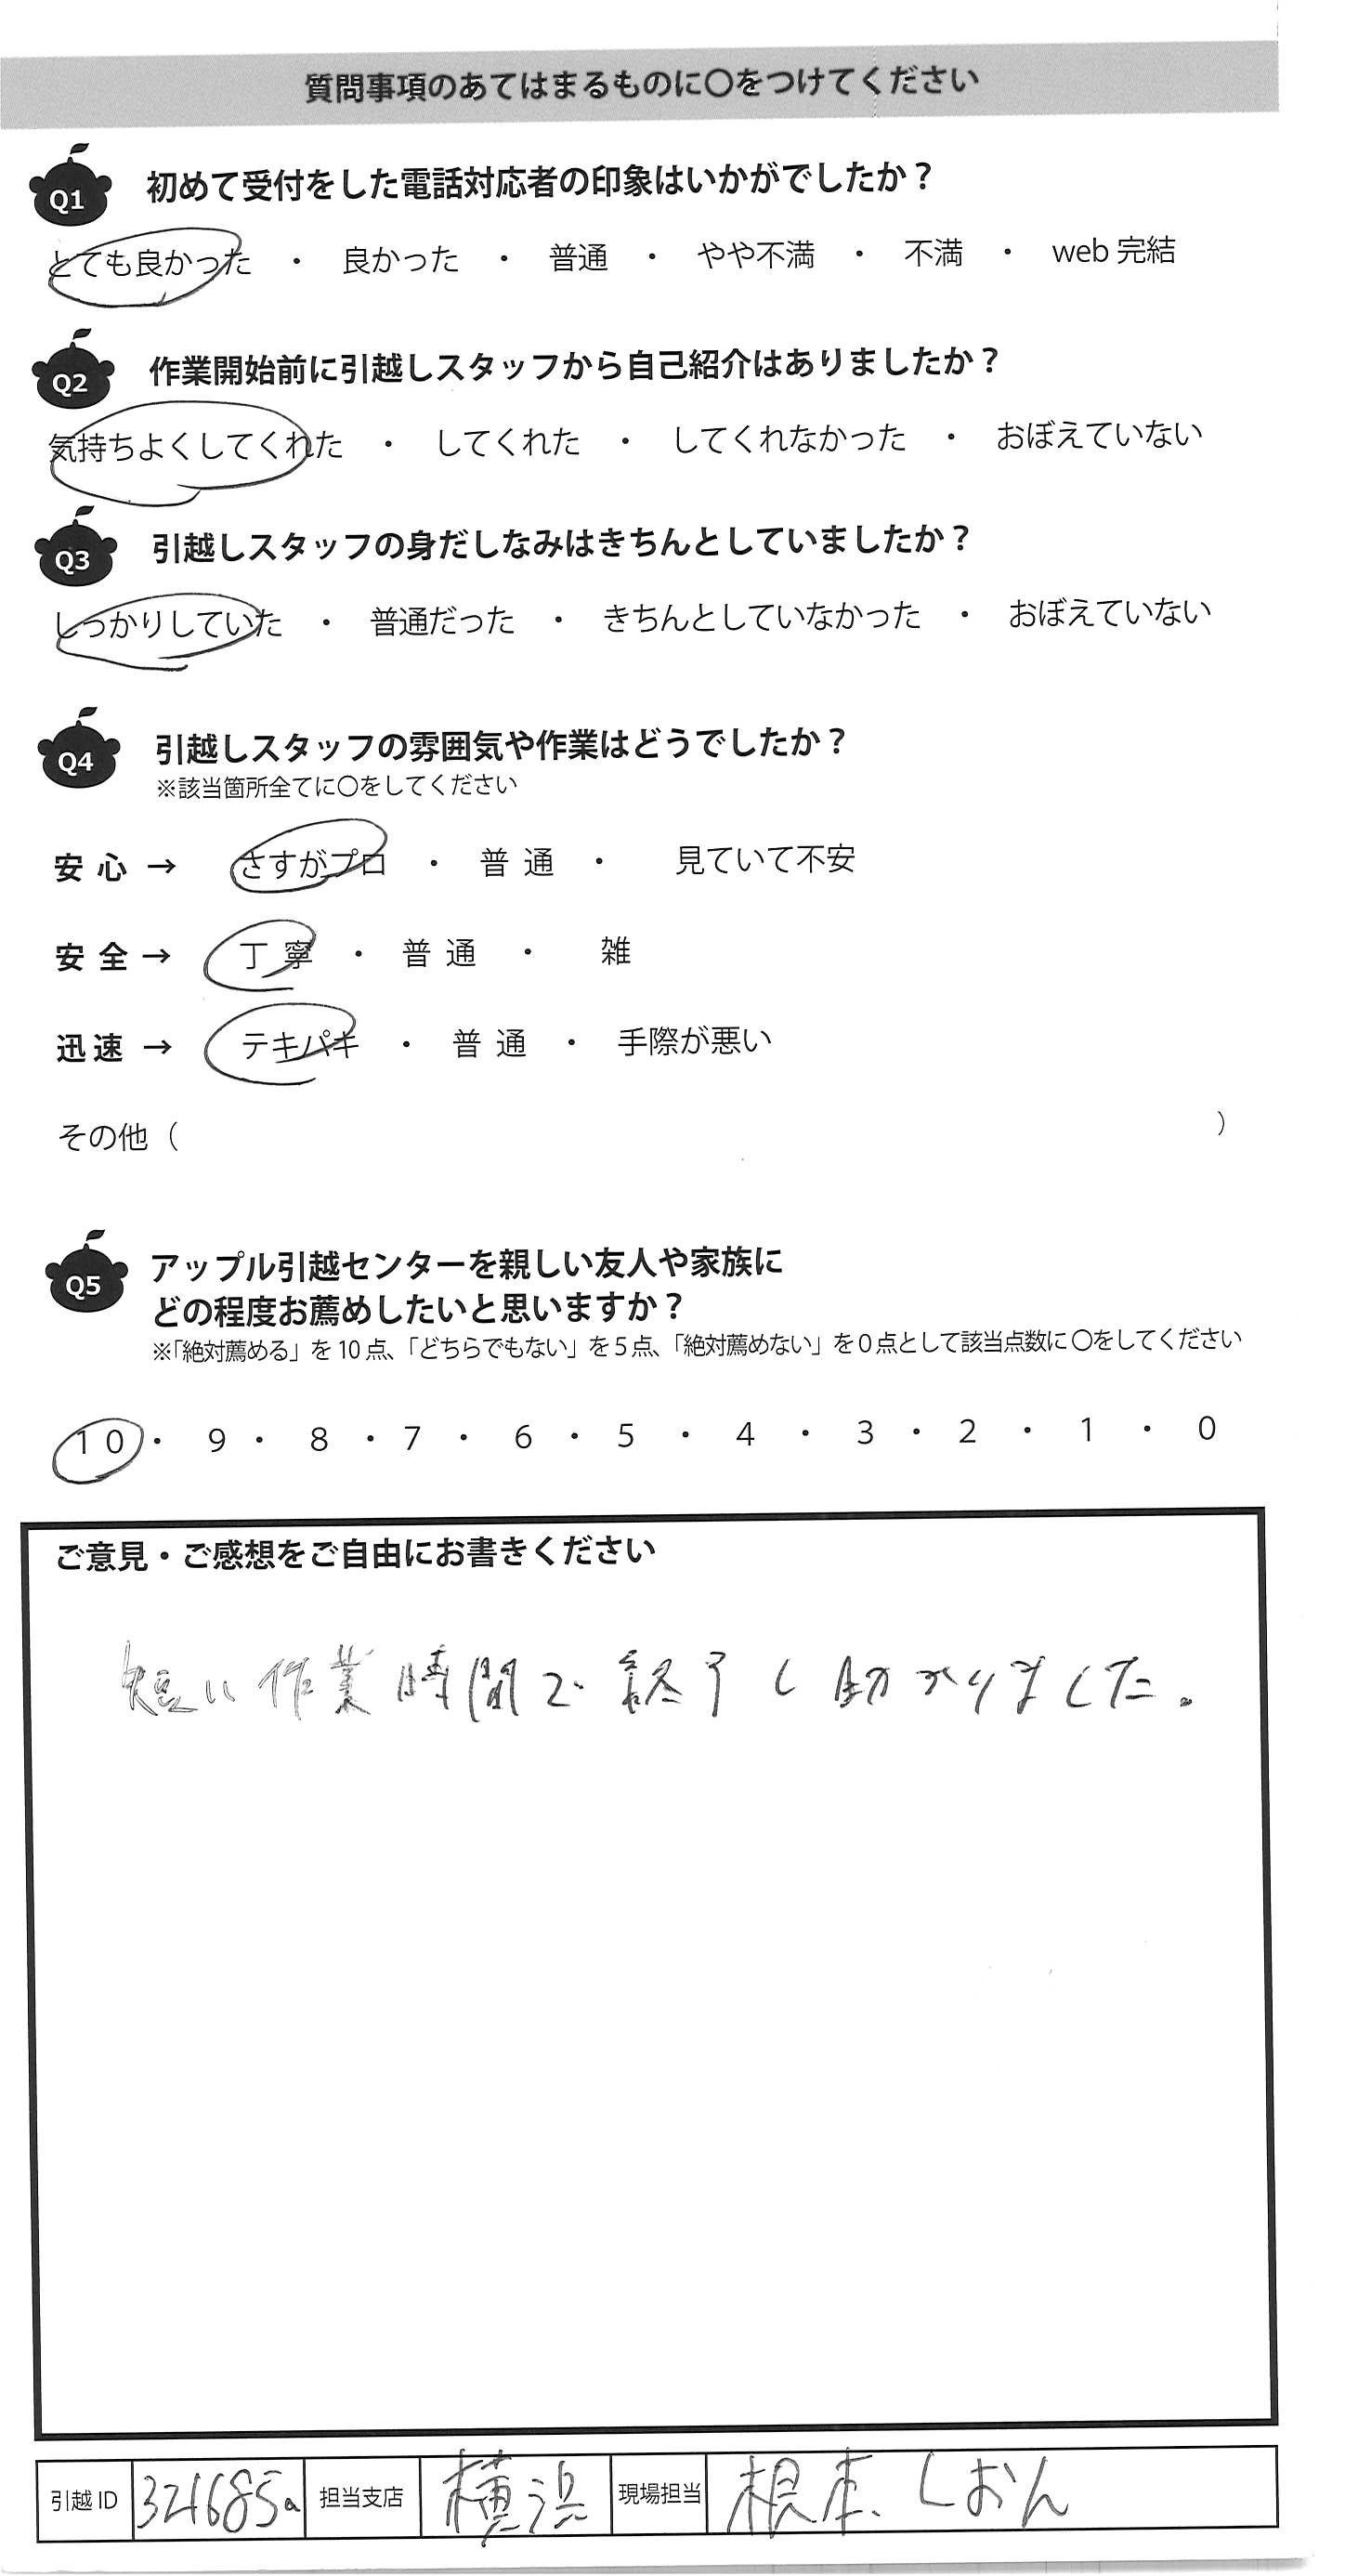 質問事項のあてはまるものに〇をつけてください
Q1 初めて受付をした電話対応者の印象はいかがでしたか？
とても良かった ・ 良かった ・ 普通 ・ やや不満 ・ 不満 ・ web 完結
Q2 作業開始前に引越しスタッフから自己紹介はありましたか？
気持ちよくしてくれた ・ してくれた ・ してくれなかった ・ おぼえていない
Q3 引越しスタッフの身だしなみはきちんとしていましたか？
しっかりしていた ・ 普通だった ・ きちんとしていなかった ・ おぼえていない
Q4 引越しスタッフの雰囲気や作業はどうでしたか？
※該当箇所全てに〇をしてください
安心 → さすがプロ ・ 普通 ・ 見ていて不安
安全 → 丁寧 ・ 普通 ・ 雑
迅速 → テキパキ ・ 普通 ・ 手際が悪い
その他（ ）
Q5 アップル引越センターを親しい友人や家族に
どの程度お薦めしたいと思いますか？
※「絶対薦める」を 10 点、「どちらでもない」を 5 点、「絶対薦めない」を 0 点として該当点数に 〇をしてください
10 ・ 9 ・ 8 ・ 7 ・ 6 ・ 5 ・ 4 ・ 3 ・ 2 ・ 1 ・ 0
ご意見・ご感想をご自由にお書きください
短い作業時間で終了し助かりました。
引越 ID 321685a 担当支店 横浜 現場担当 根本、しおん